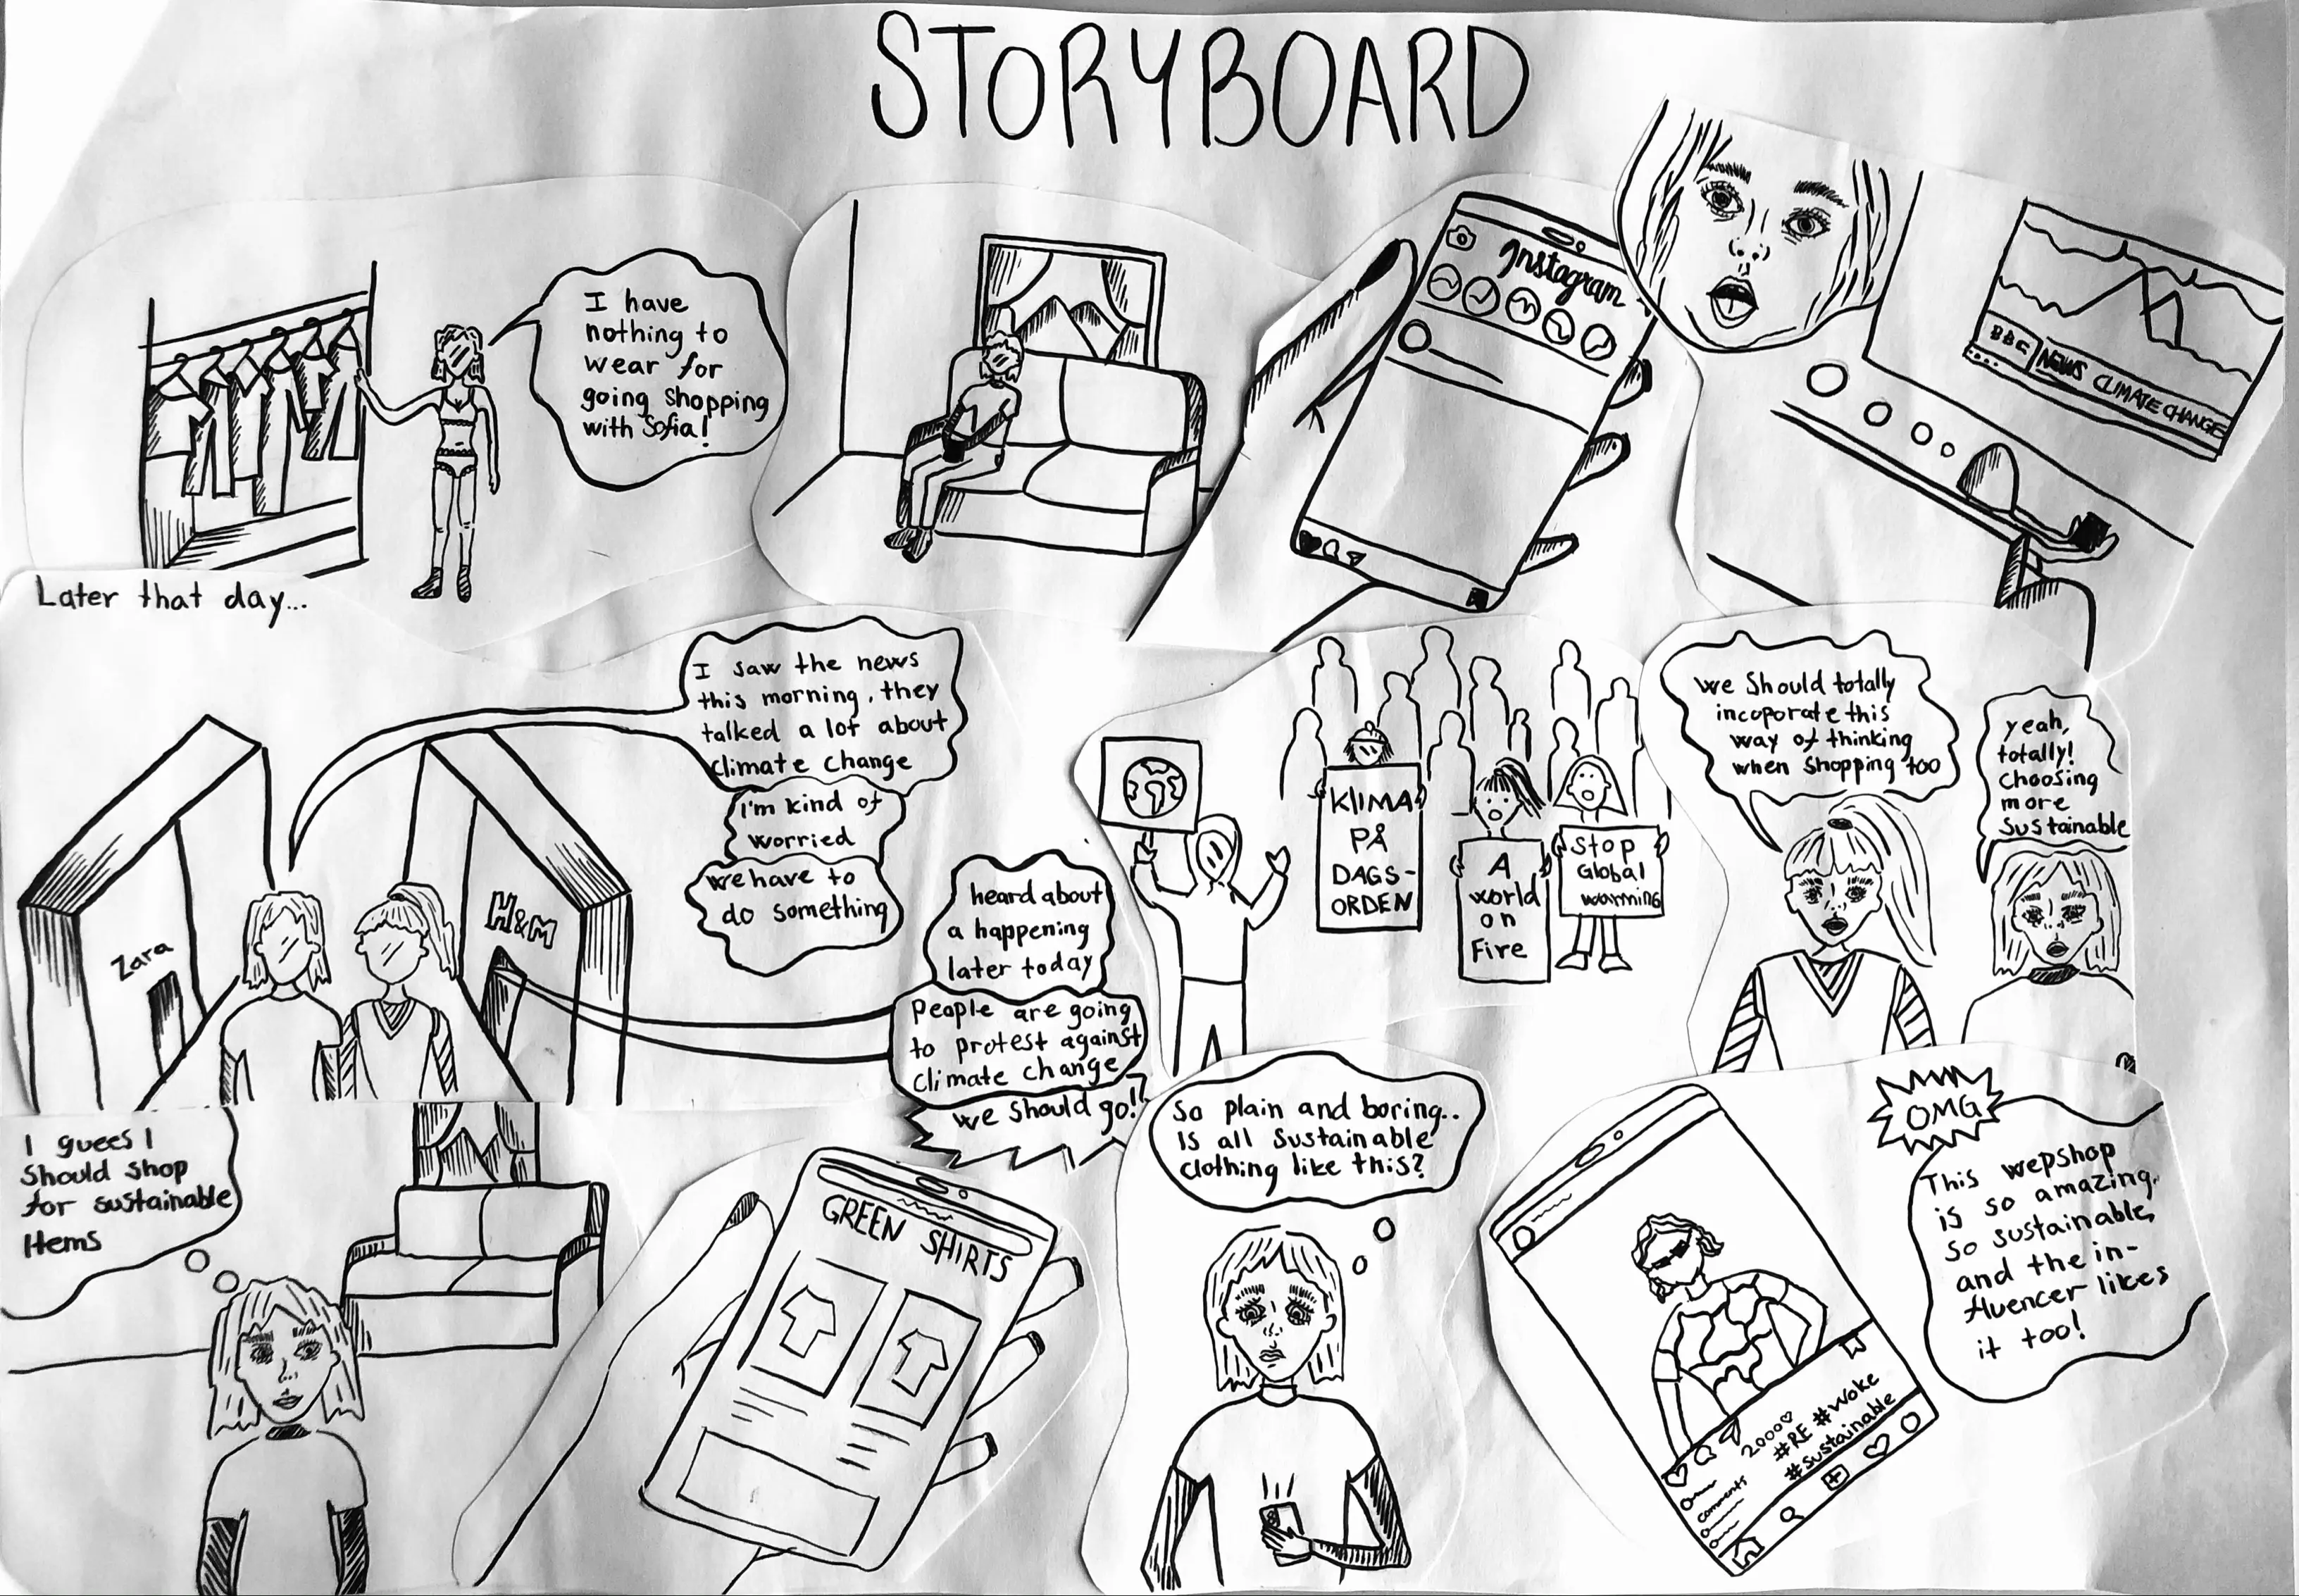 STORYBOARD
I have
nothing to
wear for
going shopping
with Sofia!
Instagram
BBC NEWS CLIMATE CHANGE
Later that day...
Zara
H&M
I saw the news
this morning, they
talked a lot about
climate change
I'm kind of
worried
we have to
do something
heard about
a happening
later today
People are going
to protest against
climate change
we should go!
KLIMA
PÅ
DAGS-
ORDEN
A
world
on
Fire
Stop
Global
warming
we should totally
incoporate this
way of thinking
when shopping too
yeah,
totally!
Choosing
more
Sustainable
I guees I
should shop
for sustainable
Items
GREEN SHIRTS
So plain and boring..
Is all Sustainable
clothing like this?
2000♡
#RE #woke
#sustainable
comments
OMG
This wepshop
is so amazing.
so sustainable,
and the in-
fluencer likes
it too!